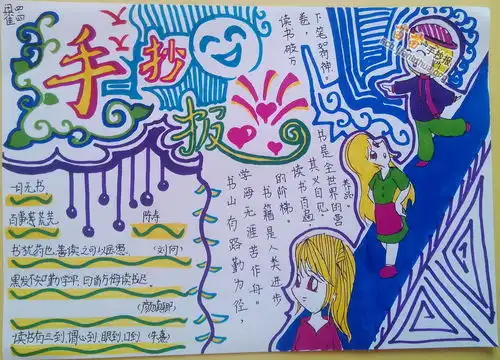 手抄报
读书破万
卷，
下笔如有神。
一日无书
陈寿
书犹药也，善读之可以医愚。
(刘向)
黑发不知勤学早，白首方悔读书迟。
(颜真卿)
读书有三到，谓心到，眼到，口到(朱熹)
书山有路勤为径，
学海无涯苦作舟。
书籍是人类进步
的阶梯。
读书百遍，
其义自见。
书是全世界的营
养品。